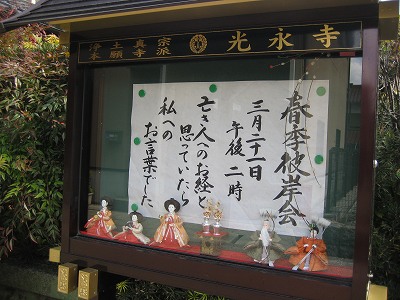 浄土真宗
本願寺派
光永寺
春季彼岸会
三月二十一日
午後二時
亡き人へのお経と
思っていたら
私への
お言葉でした